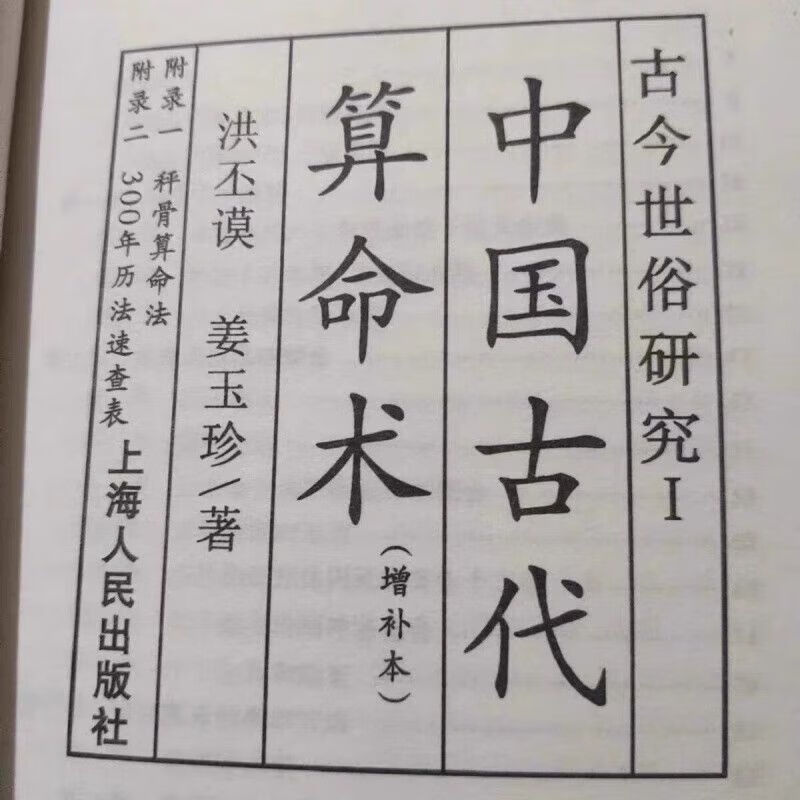 古今世俗研究I
中国古代
算命术(增补本)
洪丕谟 姜玉珍/著
附录一 秤骨算命法
附录二 300年历法速查表
上海人民出版社